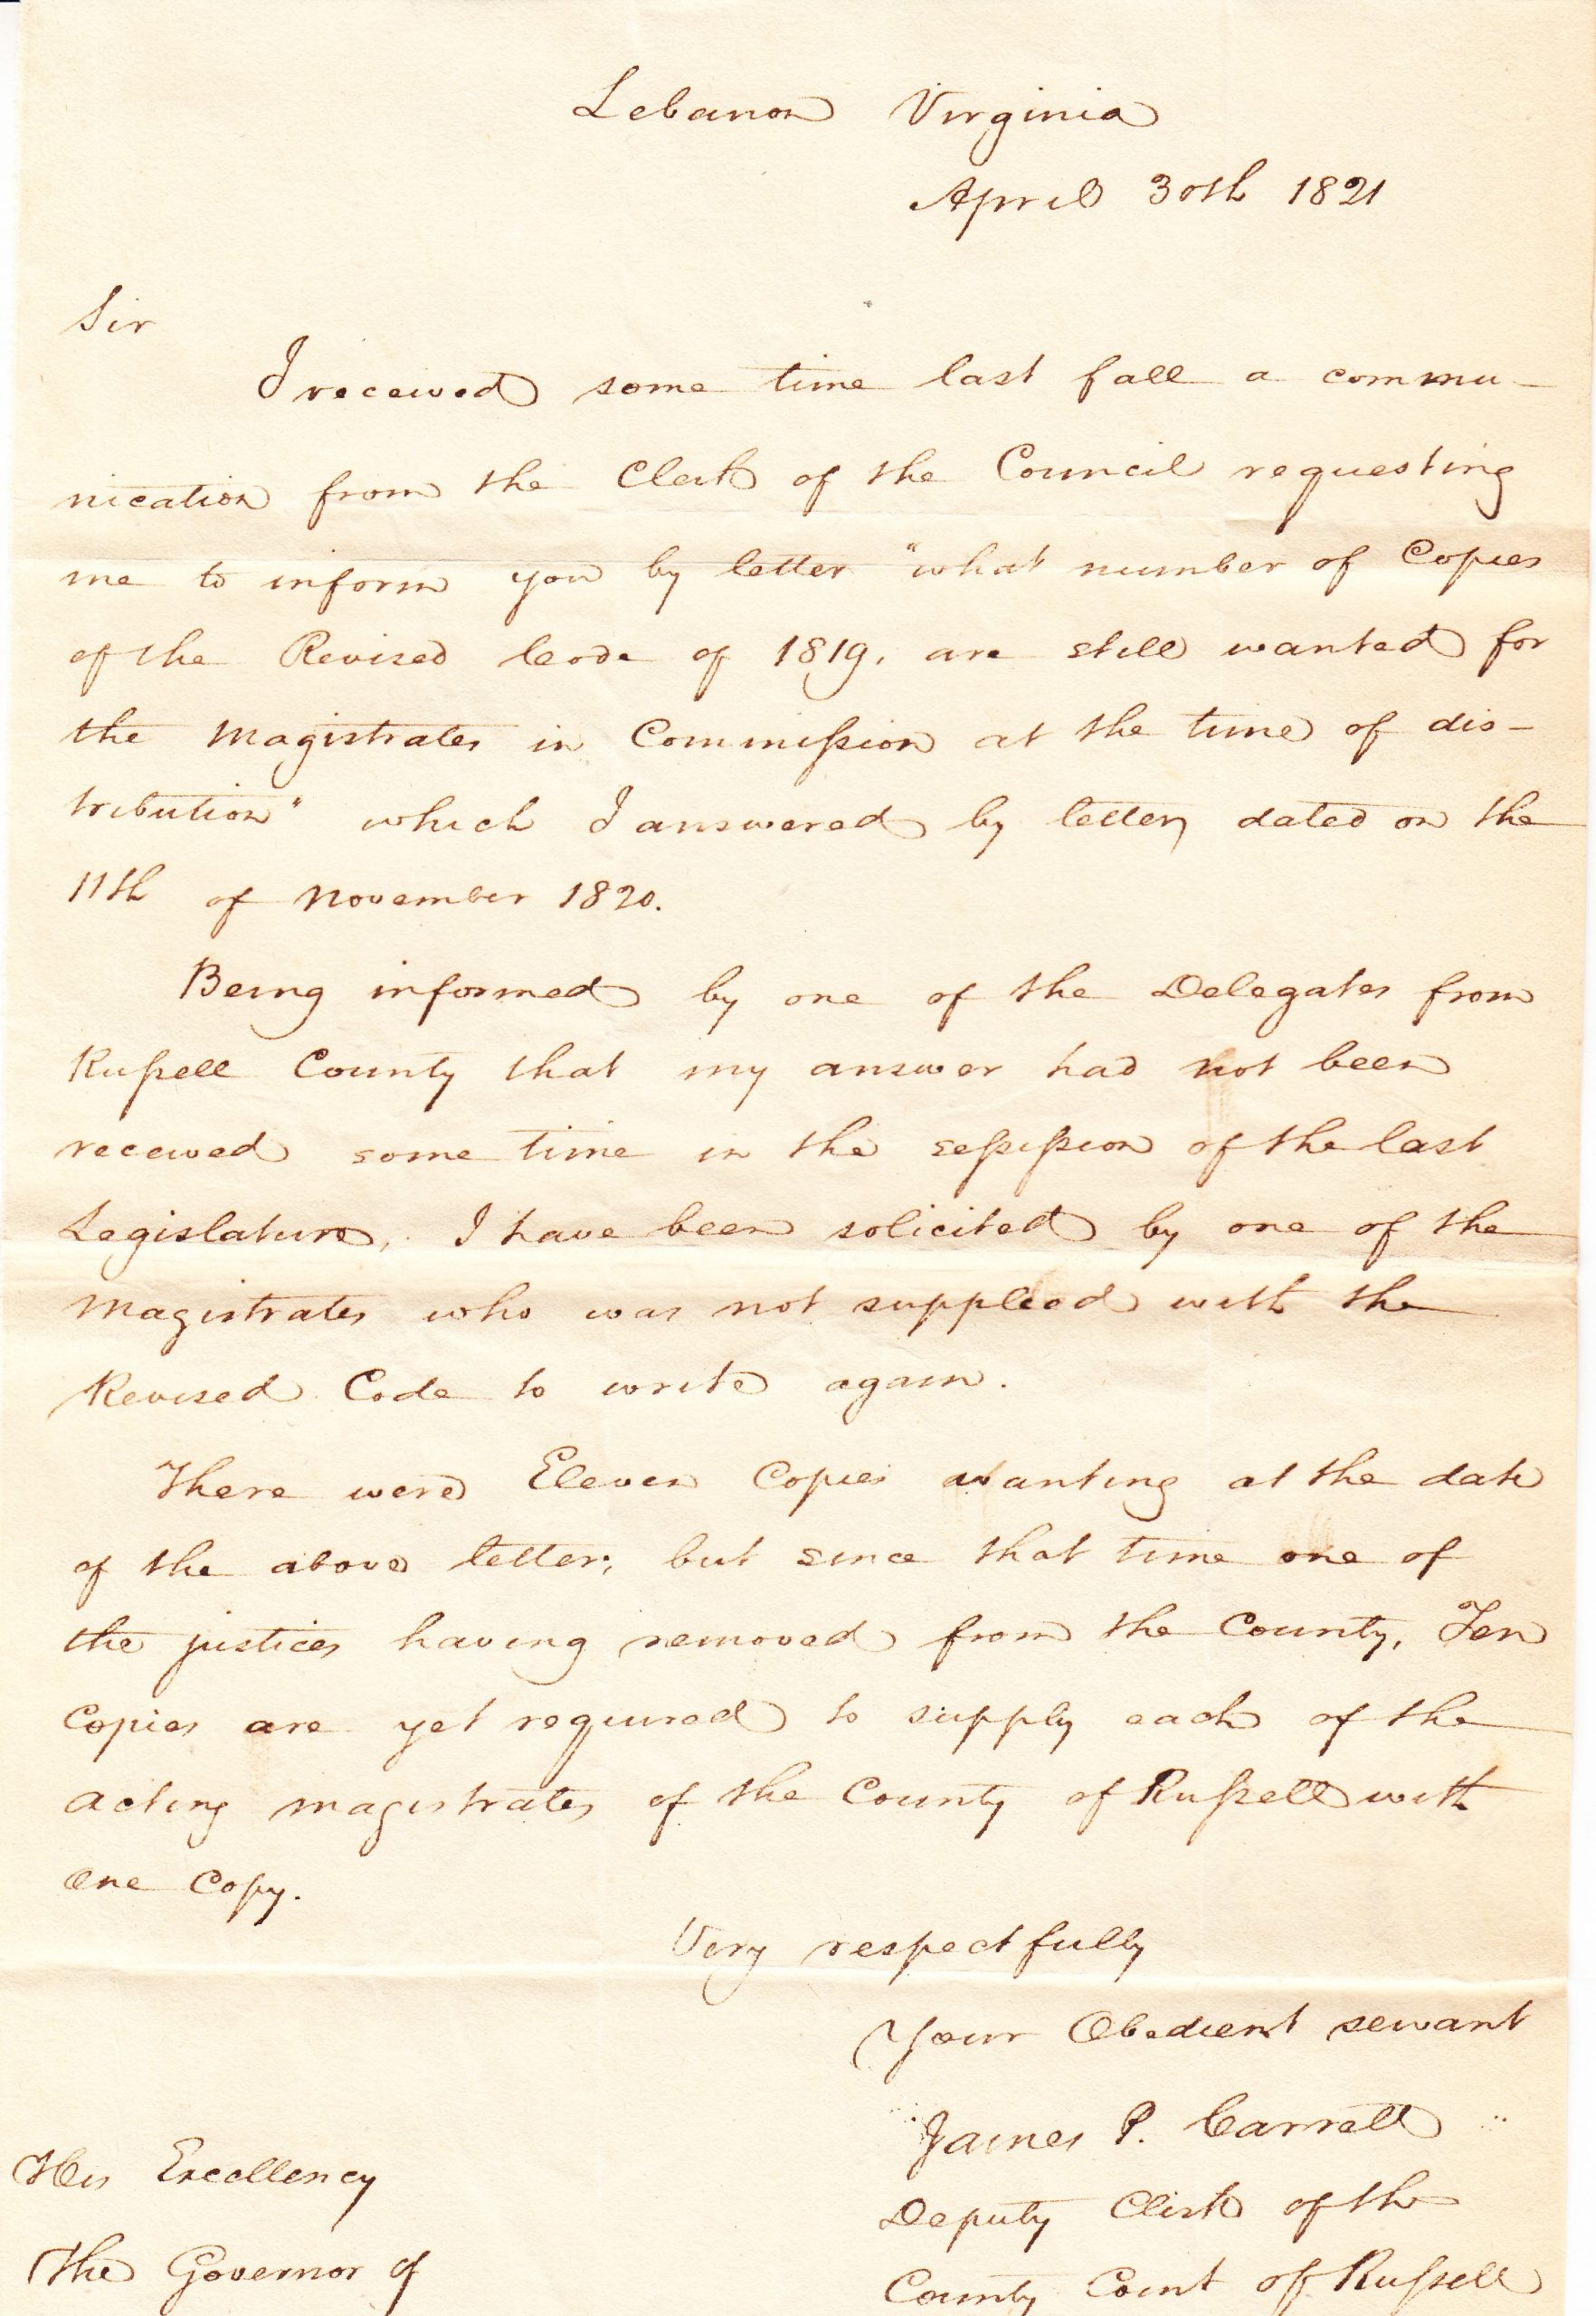 Lebanon Virginia
April 30th 1821
Sir
I received some time last fall a commu-
nication from the Clerk of the Council requesting
me to inform you by letter "what number of Copies
of the Revised Code of 1819, are still wanted for
the Magistrates in Commission at the time of dis-
tribution" which I answered by letter, dated on the
11th of November 1820.
Being informed by one of the Delegates from
Russell County that my answer had not been
received some time in the sessission of the last
Legislature, I have been solicited by one of the
Magistrates who was not supplied with the
Revised Code to write again.
There were Eleven Copies wanting at the date
of the above letter; but since that time one of
the justices having removed from the County, Ten
Copies are yet required to supply each of the
acting magistrates of the County of Russell with
one Copy.
Very respectfully
Your Obedient servant
James P. Carrell
His Excellency
Deputy Clerk of the
The Governor of
County Court of Russell